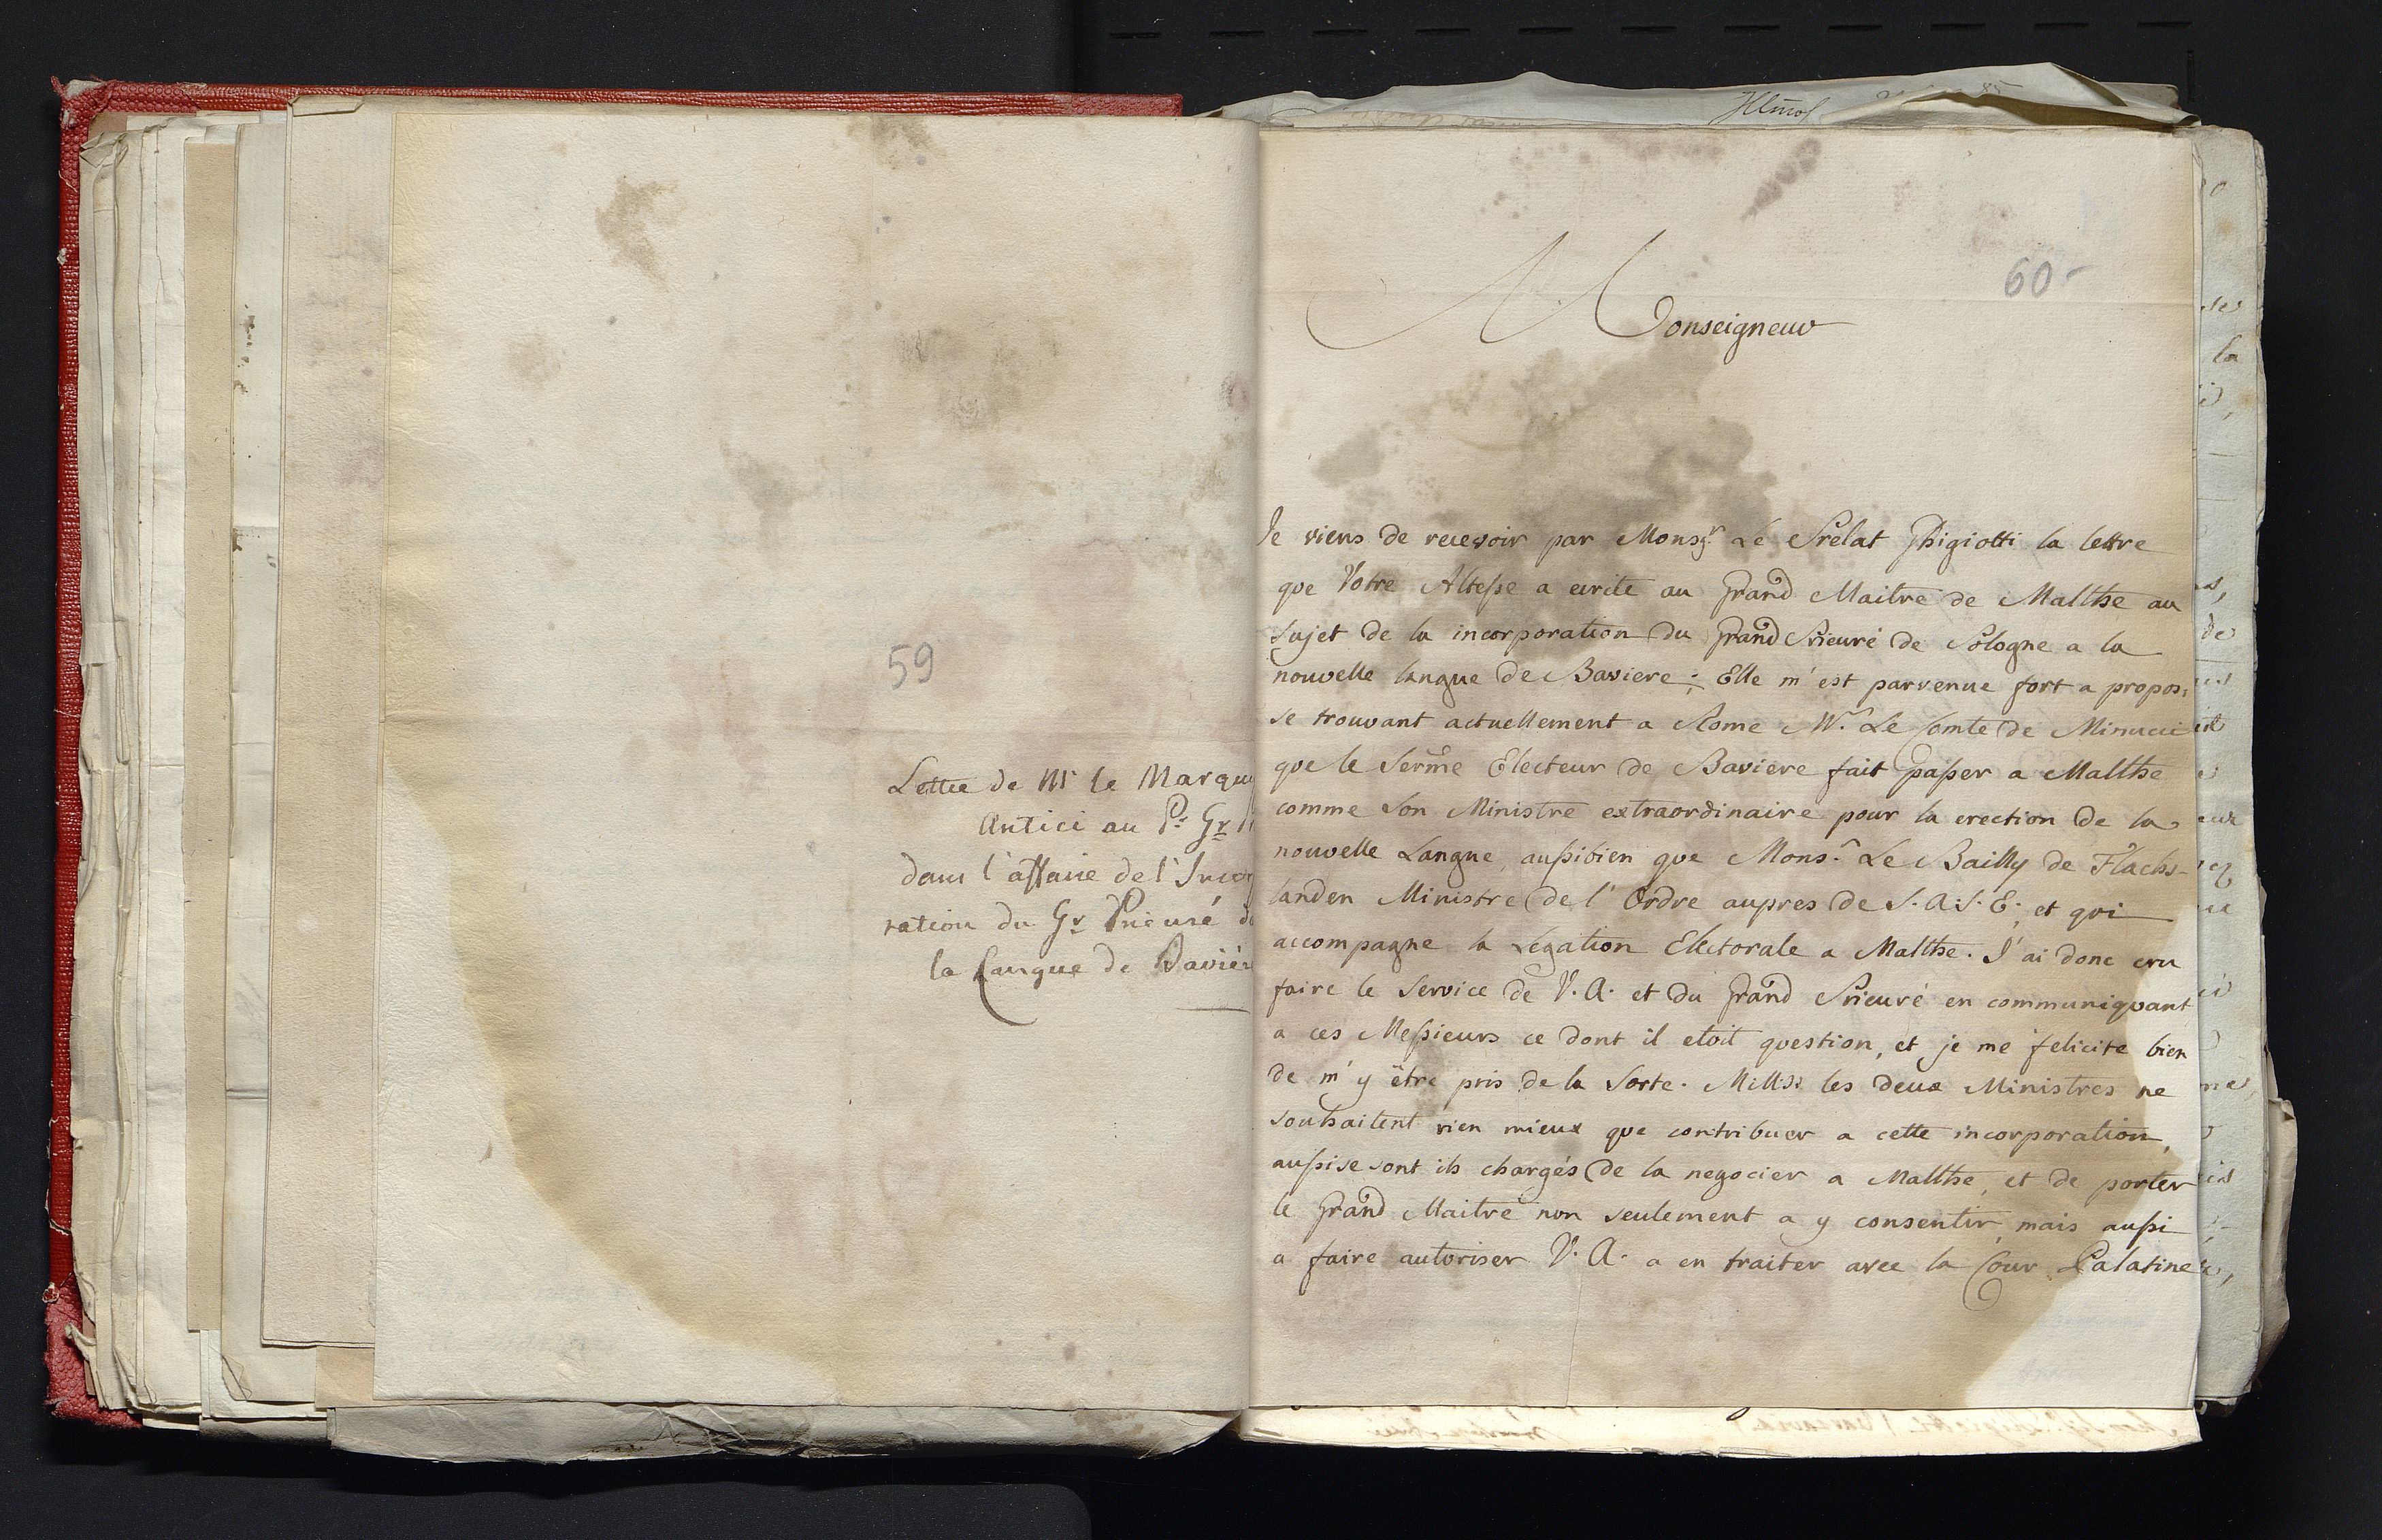 59
Lettre de Mr le Marqu
Antici au Pr Gr P
dans l'affaire de l'Incor
ration du Gr Prieuré d
la Langue de Bavièr
60
Monseigneur
Je viens de recevoir par Monsgr. Le Prelat Ghigiotti la lettre
que Votre Altesse a ecrite au Grand Maitre de Malthe au
sujet de la incorporation du Grand Prieuré de Pologne a la
nouvelle langue de Baviere; Elle m'est parvenue fort a propos,
se trouvant actuellement a Rome Mr. Le Comte de Minucci
que le Serme Electeur de Baviere fait passer a Malthe
comme Son Ministre extraordinaire pour la erection de la
nouvelle Langue, aussibien que Monsr. Le Bailly de Flachs-
landen Ministre de l'Ordre aupres de S.A.S.E. et qui
accompagne la Legation Electorale a Malthe. J'ai donc cru
faire le Service de V.A. et du Grand Prieuré en communiquant
a ces Messieurs ce dont il etoit question, et je me felicite bien
de m'y être pris de la Sorte. M:M:rs les deux Ministres ne
souhaitent rien mieux que contribuer a cette incorporation,
aussi se sont ils chargés de la negocier a Malthe, et de porter
le Grand Maitre non seulement a y consentir, mais aussi
a faire autoriser V.A. a en traiter avec la Cour Palatine